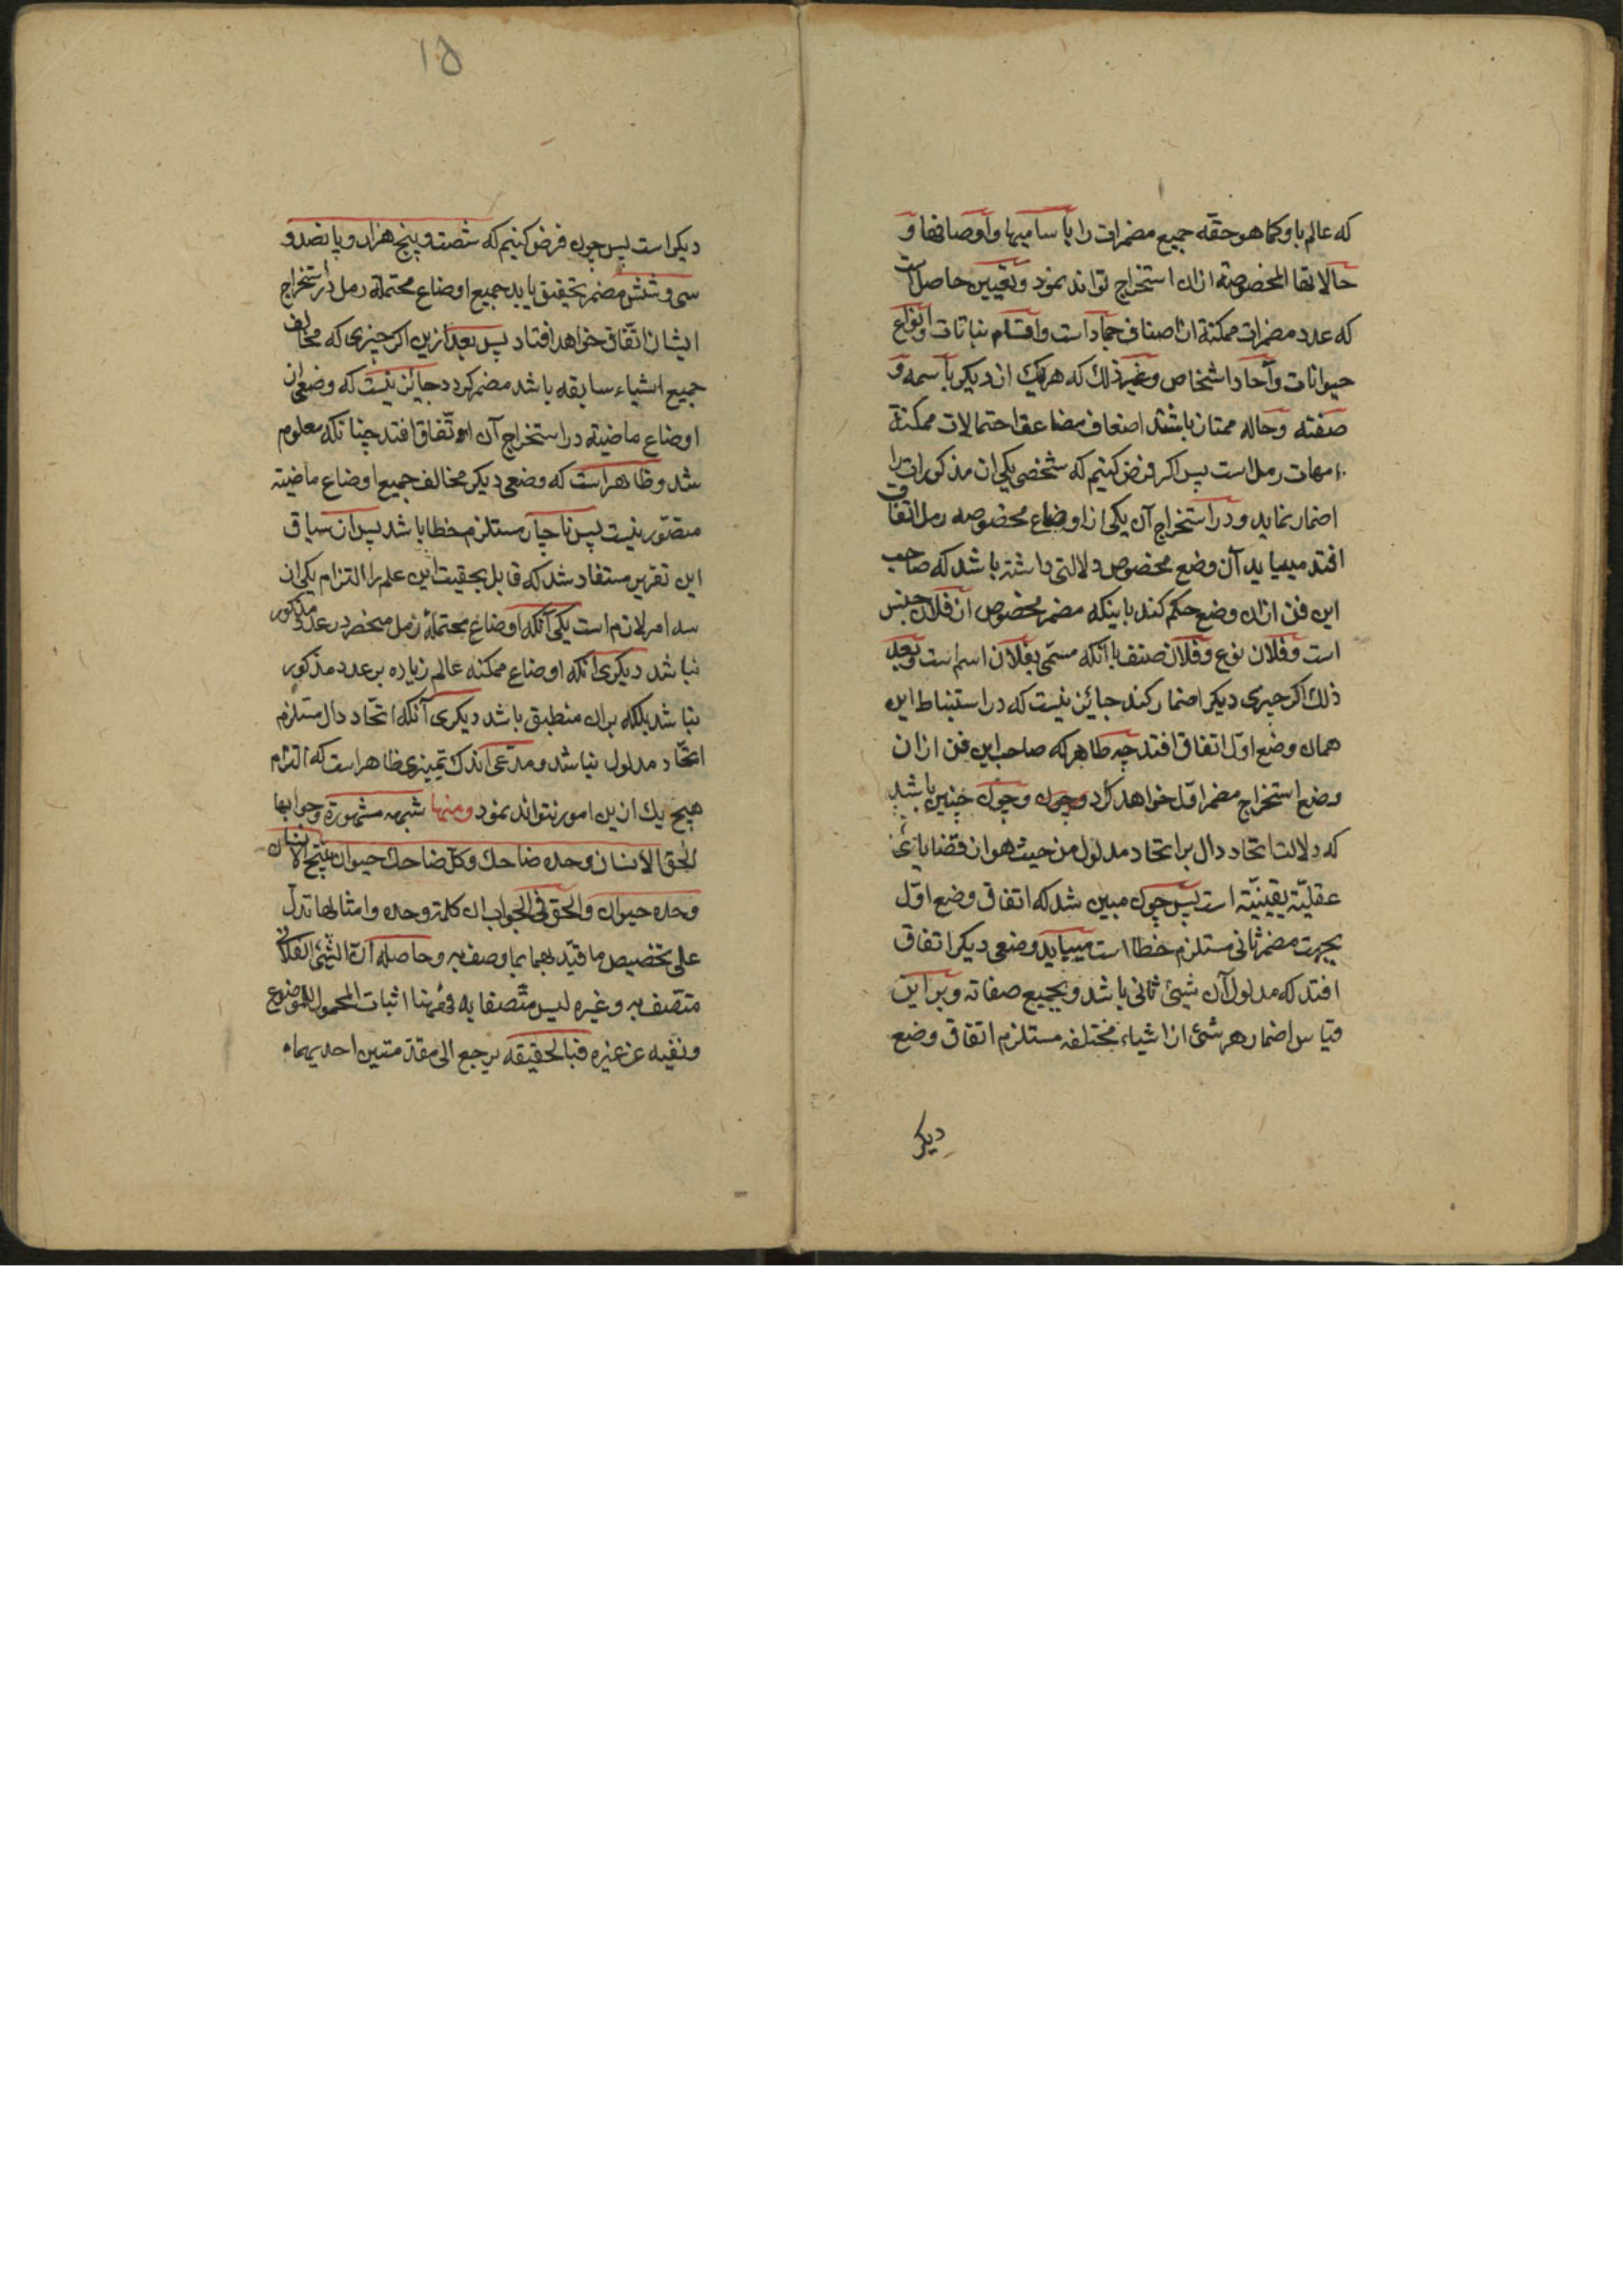 که عالم باو کما هو حقّه جمیع مضمرات را با سامیها و اوصافها و
حالاتها المخصوصة ازان استخراج تواند نمود و تعیین حاصل است
که عدد مضمرات ممکنة از اصناف جماد است و اقسام نباتات و انواع
حیوانات و آحاد اشخاص و غیر ذلک که هر یک از دیگر باسمه و
صفته و حاله ممتاز باشند اضعاف مضاعف احتمالات ممکنة
امهات رمل است پس اکر فرض کنیم که شخصی یکی از مذکورات را
اضمار نماید و در استخراج آن یکی از اوضاع مخصوصه رمل اتفاق
افتد میباید آن وضع مخصوص دلالتی داشته باشد که صاحب
این فن ازان وضع حکم کند باینکه مضمر مخصوص از فلان جنس
است و فلان نوع و فلان صنف با آنکه مسمّی بفلان اسم است و بعد
ذلک اکر چیزی دیکر اضمار کند جائز نیست که در استنباط این
همان وضع اوّل اتفاق افتد چه ظاهر که صاحب این فن از ان
وضع استخراج مضمر اوّل خواهد کرد و چون و چون چنین باشد
که دلالت اتحاد دال بر اتحاد مدلول من حیث هو از قضایای
عقلیّة یقینیّة است پس چون مبین شد که اتفاق وضع اوّل
بجهت مضمر ثانی مستلزم خطا است میباید وضعی دیکر اتفاق
افتد که مدلول آن شیئ ثانی باشد و بجمیع صفاته و بر این
قیاس اضمار هر شئ از اشیاء مختلفه مستلزم اتفاق وضع
دیکر
۱۵
دیکر است پس چون فرض کنیم که شصت و پنج هزار و پانصد و
سی و شش مضمر تحقیق یابد جمیع اوضاع محتملة رمل در استخراج
ایشان اتّفاق خواهد افتاد پس بعد ازین اکر چیزی که مخالف
جمیع اشیاء سابقه باشد مضمر کردد جائز نیست که وضعی از
اوضاع ماضیة در استخراج آن اتّفاق افتد چنانکه معلوم
شد و ظاهر است که وضعی دیکر مخالف جمیع اوضاع ماضیة
متصّور نیست پس ناچار مستلزم خطا باشد پس از سیاق
این تقریر مستفاد شد که قایل بحقیت این علم را التزام یکی از
سه امر لازم است یکی آنکه اوضاع محتملهٔ رمل منحصر در عدد مذکور
نباشد دیکری آنکه اوضاع ممکنه عالم زیاده بر عدد مذکور
نباشد بلکه بران منطبق باشد دیکری آنکه اتّحاد دال مستلزم
اتّحاد مدلول نباشد و مدّعی اندک تمیزی ظاهر است که التزام
هیچ یک ازین امور نتواند نمود ومنها شبهه مشهورة و جوابها
الحق الانسان وحده ضاحک و کل ضاحک حیوان ینتج الانسان
وحده حیوان والحق فی الجواب ان کلمة وحده و امثالها تدل
علی تخصیص ما قیّد بهما بما وصف به و حاصله انّ الشّیئ الفلانی
متّصف به و غیره لیس متّصفا به فههنا اثبات المحمول للموضوع
و نفیه عن غیره فبالحقیقه یرجع الی مقدمتین احدیهما